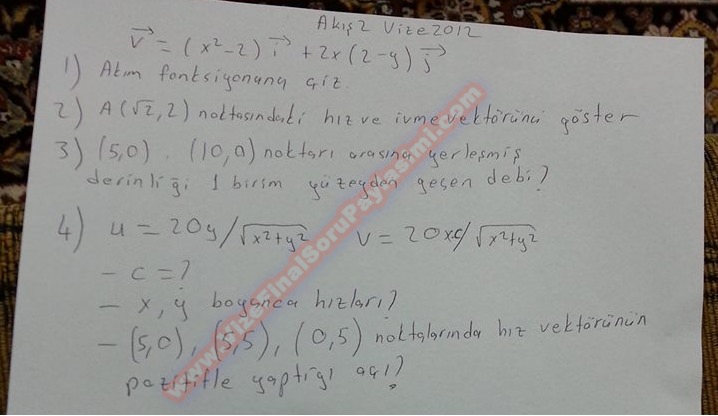 Akış 2 Vize 2012
V⃗ = (x²-2) i⃗ + 2x(2-y) j⃗
1) Akım fonksiyonunu çiz.
2) A(√2, 2) noktasındaki hız ve ivme vektörünü göster
3) (5,0) . (10,0) noktarı arasına yerleşmiş
derinliği 1 birim yüzeyden geçen debi?
4) u = 20y/√x²+y² V = 20xc/√x²+y²
- c = ?
- x, y boyunca hızları?
- (5,0), (5,5), (0,5) noktalarında hız vektörünün
pozitifle yaptığı açı?
www.VizeFinalSoruPaylasimi.com